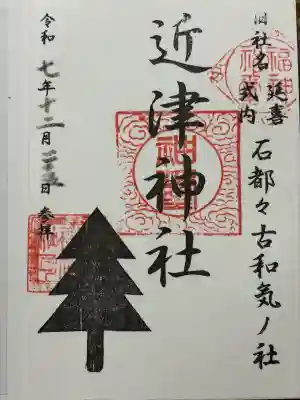 旧社名 延喜式内 石都々古和気ノ社
近津神社
令和七年十二月二十五日 参拝